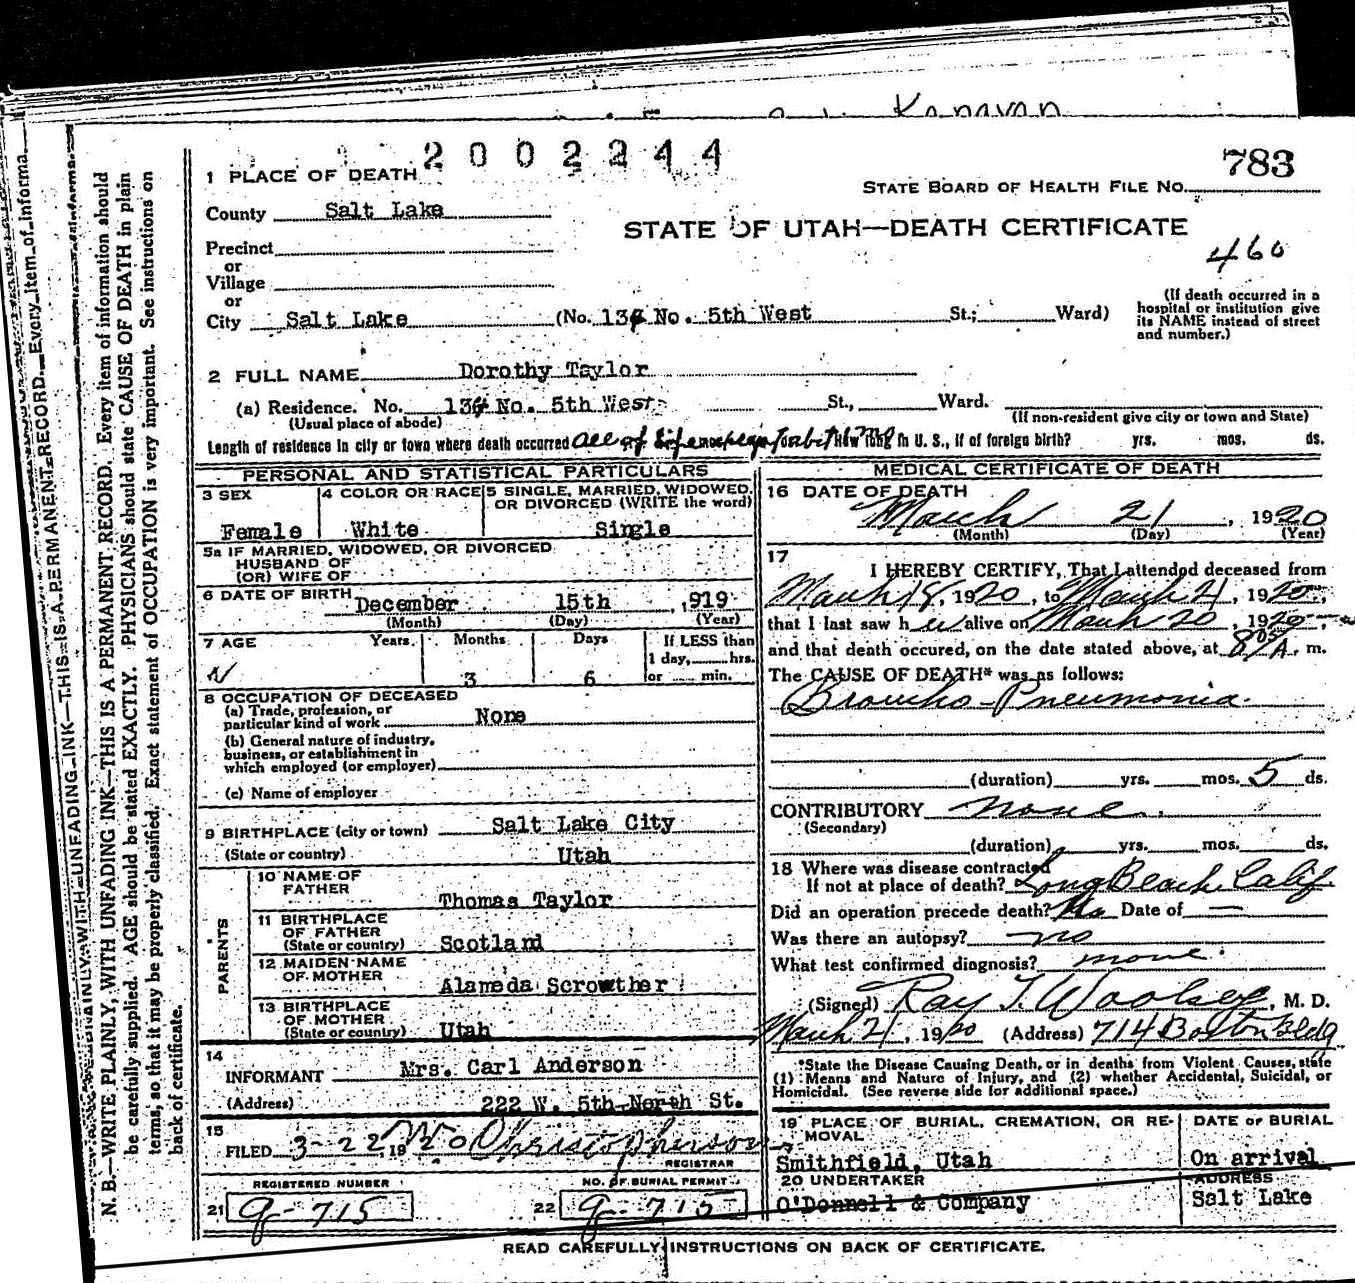 Kanavan
2002244
783
1 PLACE OF DEATH
STATE BOARD OF HEALTH FILE No.
County Salt Lake
STATE OF UTAH—DEATH CERTIFICATE
Precinct
460
or
Village
or
City Salt Lake (No. 134 No. 5th West St.; Ward)
(If death occurred in a
hospital or institution give
its NAME instead of street
and number.)
2 FULL NAME Dorothy Taylor
(a) Residence. No. 134 No. 5th West St., Ward.
(Usual place of abode) (If non-resident give city or town and State)
Length of residence in city or town where death occurred all of life How long in U. S., if of foreign birth? yrs. mos. ds.
PERSONAL AND STATISTICAL PARTICULARS
3 SEX 4 COLOR OR RACE 5 SINGLE, MARRIED, WIDOWED,
OR DIVORCED (WRITE the word)
Female White Single
5a IF MARRIED, WIDOWED, OR DIVORCED
HUSBAND OF
(OR) WIFE OF
6 DATE OF BIRTH December 15th , 919
(Month) (Day) (Year)
7 AGE Years. Months Days If LESS than
1 day, hrs.
3 6 or min.
8 OCCUPATION OF DECEASED
(a) Trade, profession, or
particular kind of work None
(b) General nature of industry,
business, or establishment in
which employed (or employer)
(c) Name of employer
9 BIRTHPLACE (city or town) Salt Lake City
(State or country) Utah
PARENTS
10 NAME OF
FATHER
Thomas Taylor
11 BIRTHPLACE
OF FATHER
(State or country) Scotland
12 MAIDEN NAME
OF MOTHER
Alameda Scrowther
13 BIRTHPLACE
OF MOTHER
(State or country) Utah
14
INFORMANT Mrs. Carl Anderson
(Address) 222 W. 5th North St.
15
FILED 3-22, 1920 Christopherson
REGISTRAR
REGISTERED NUMBER NO. OF BURIAL PERMIT
21 9-715 22 9-715
MEDICAL CERTIFICATE OF DEATH
16 DATE OF DEATH
March 21, 1920
(Month) (Day) (Year)
17
I HEREBY CERTIFY, That I attended deceased from
March 18, 1920, to March 21, 1920,
that I last saw her alive on March 20, 1920,
and that death occured, on the date stated above, at 8 05 A. m.
The CAUSE OF DEATH* was as follows:
Broncho-Pneumonia.
(duration) yrs. mos. 5 ds.
CONTRIBUTORY none.
(Secondary)
(duration) yrs. mos. ds.
18 Where was disease contracted
If not at place of death? Long Beach Calif.
Did an operation precede death? No Date of —
Was there an autopsy? no
What test confirmed diagnosis? none.
(Signed) Ray T. Woolsey, M. D.
March 21, 1920 (Address) 714 Boston Bldg
*State the Disease Causing Death, or in deaths from Violent Causes, state
(1) Means and Nature of Injury, and (2) whether Accidental, Suicidal, or
Homicidal. (See reverse side for additional space.)
19 PLACE OF BURIAL, CREMATION, OR RE-
MOVAL
DATE OF BURIAL
Smithfield, Utah On arrival
20 UNDERTAKER ADDRESS
O'Donnell & Company Salt Lake
READ CAREFULLY INSTRUCTIONS ON BACK OF CERTIFICATE.
WRITE PLAINLY, WITH UNFADING INK—THIS IS A PERMANENT RECORD. Every item of informa
N. B.—WRITE PLAINLY, WITH UNFADING INK—THIS IS A PERMANENT RECORD. Every item of information should
be carefully supplied. AGE should be stated EXACTLY. PHYSICIANS should state CAUSE OF DEATH in plain
terms, so that it may be properly classified. Exact statement of OCCUPATION is very important. See instructions on
back of certificate.